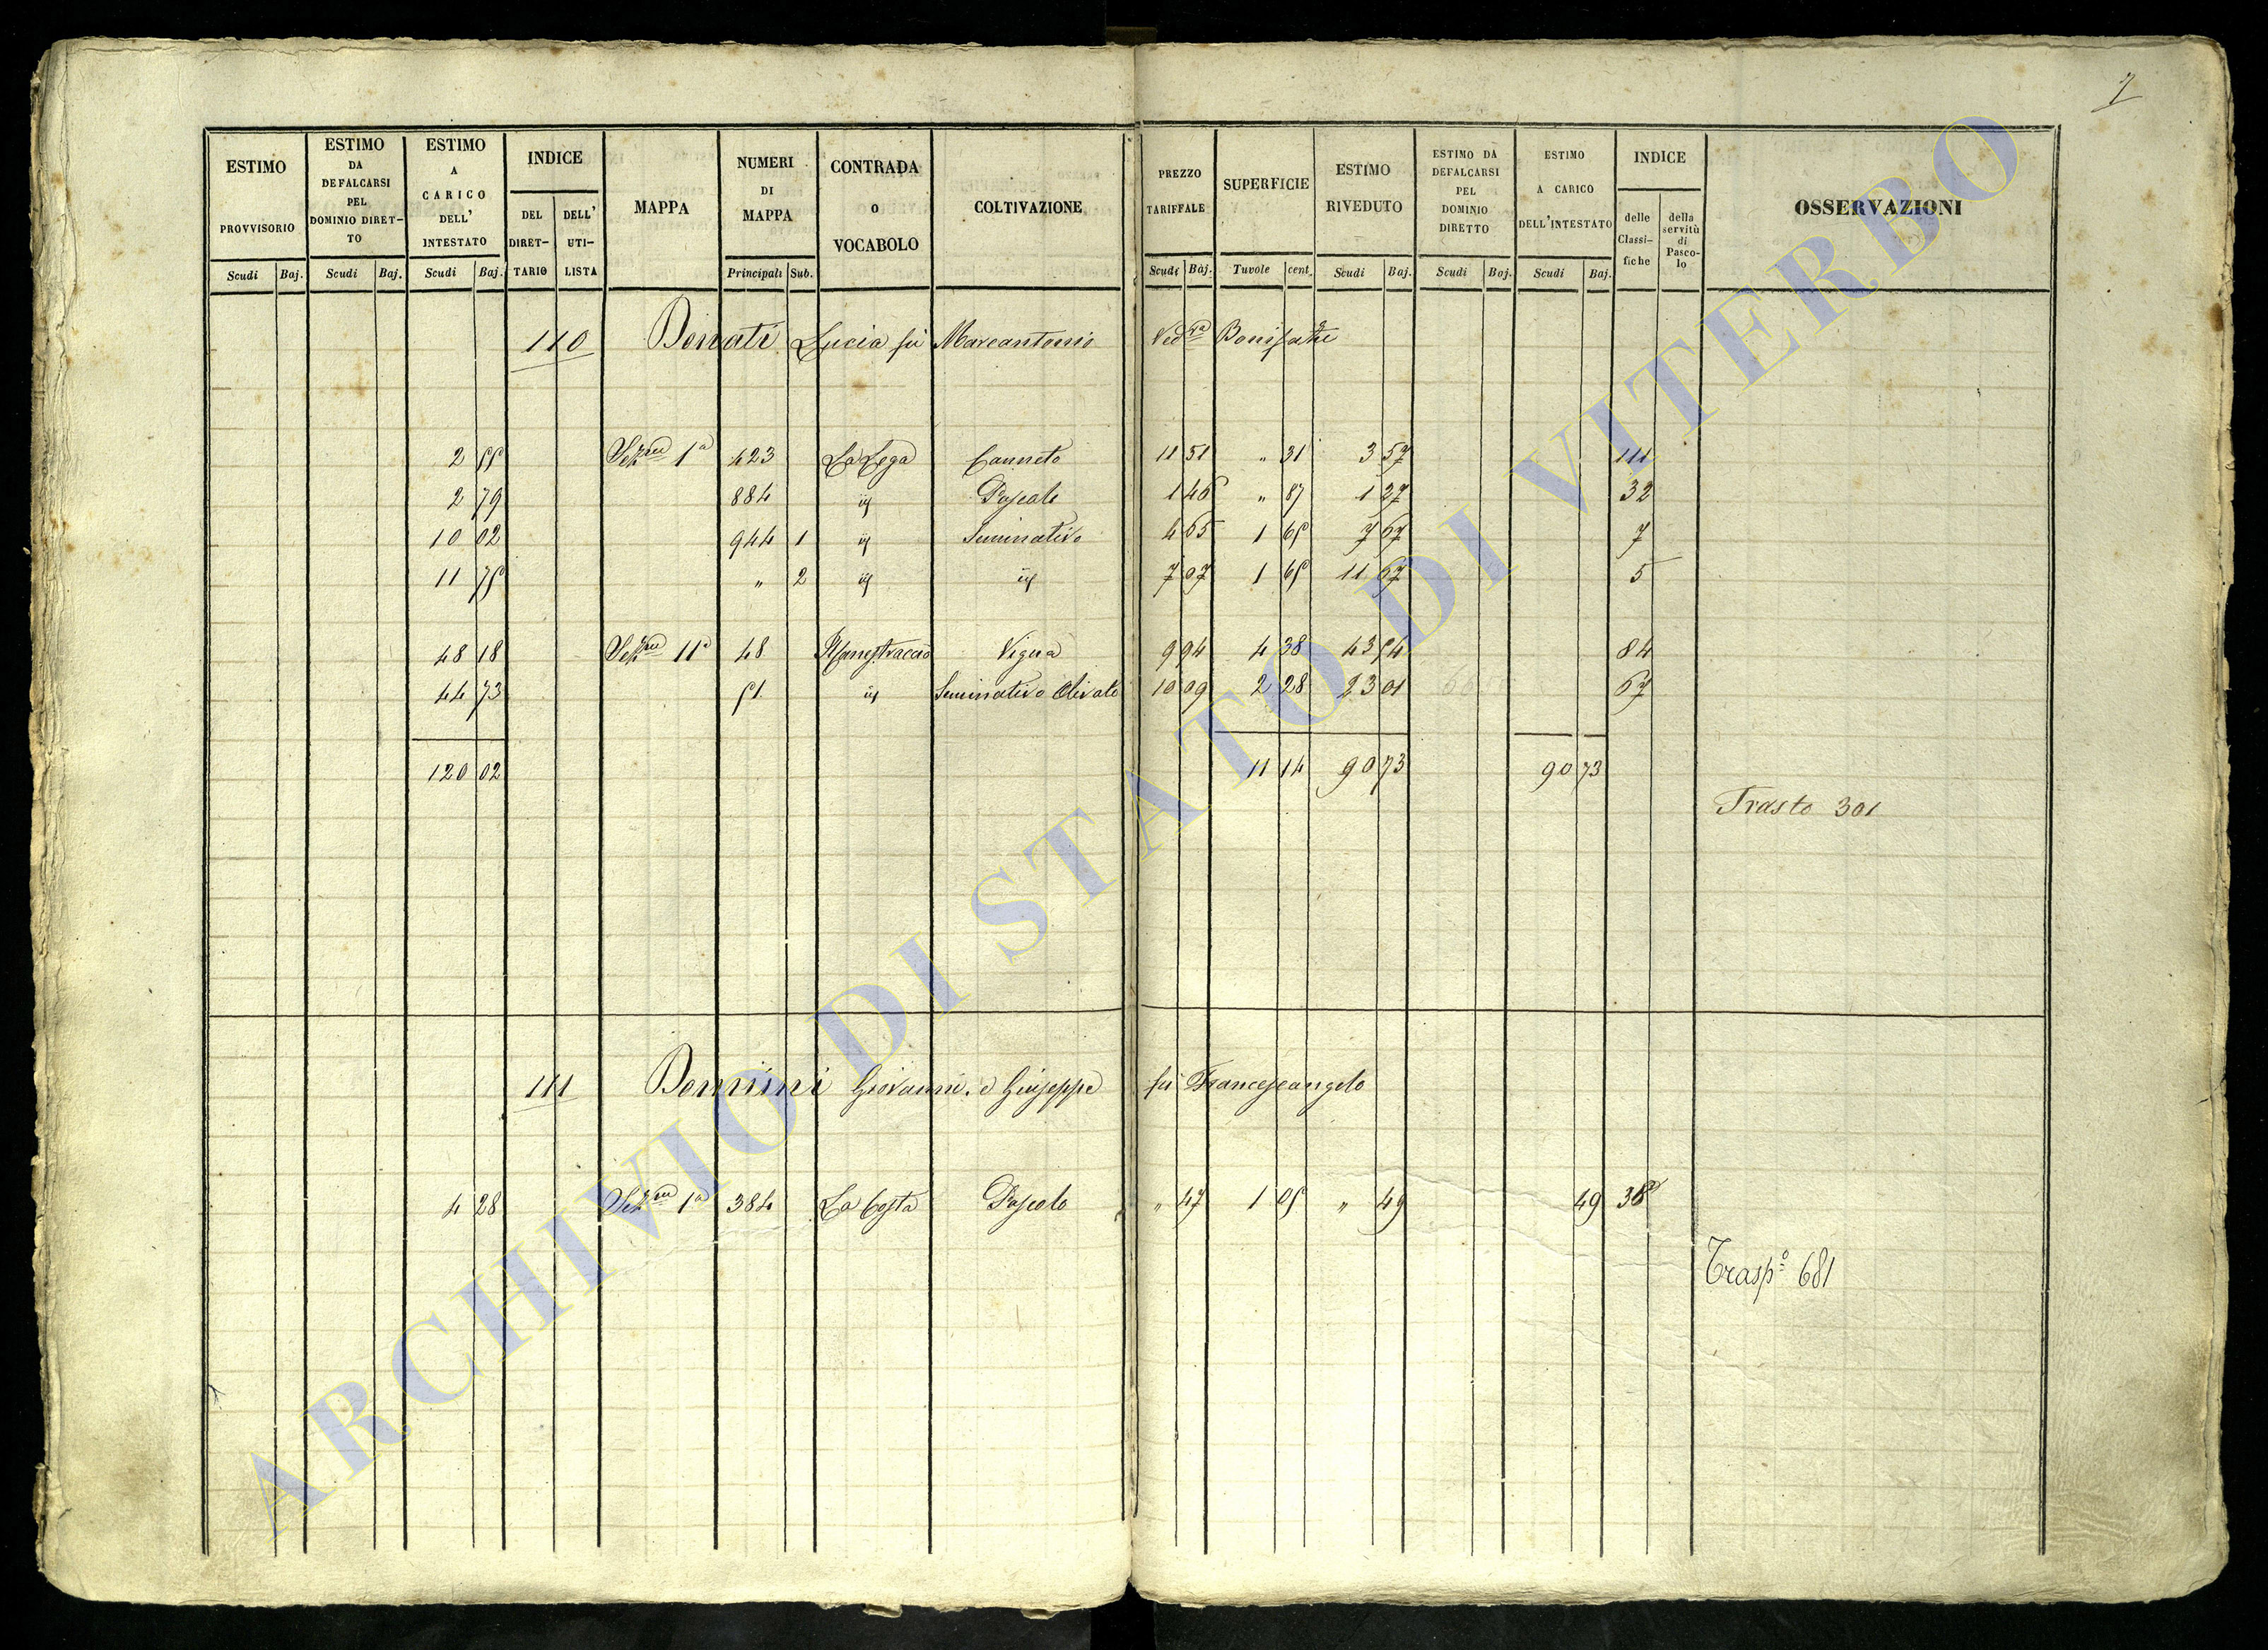 7
ESTIMO PROVVISORIO Scudi Baj.
ESTIMO DA DEFALCARSI PEL DOMINIO DIRETTO Scudi Baj.
ESTIMO A CARICO DELL' INTESTATO Scudi Baj.
INDICE DEL DIRETTARIO DELL' UTILISTA
MAPPA
NUMERI DI MAPPA Principali Sub.
CONTRADA O VOCABOLO
COLTIVAZIONE
PREZZO TARIFFALE Scudi Baj.
SUPERFICIE Tavole cent.
ESTIMO RIVEDUTO Scudi Baj.
ESTIMO DA DEFALCARSI PEL DOMINIO DIRETTO Scudi Baj.
ESTIMO A CARICO DELL'INTESTATO Scudi Baj.
INDICE delle Classifiche della servitù di Pascolo
OSSERVAZIONI
110 Donati Lucia fu Marcantonio Ved.va
2 55 Sez.ne 1a 423 La Lega Canneto 11 51 " 31 3 57 111
2 79 884 id Pascolo 1 46 " 87 1 27 32
10 02 944 1 id Seminativo 4 65 1 65 7 67 7
11 75 " 2 id id 7 07 1 65 11 67 5
48 18 Sez.ne 11a 48 Vigna 9 94 4 38 43 54 84
44 73 51 id Seminativo Olivato 10 09 2 28 23 01 67
120 02 11 14 90 73 90 73
Trasto 301
111 Donnini Giovanni e Giuseppe fu Francescangelo
4 28 Sez.ne 1a 384 La Costa Pascolo " 47 1 05 " 49 49
Trasp.o 681
ARCHIVIO DI STATO DI VITERBO